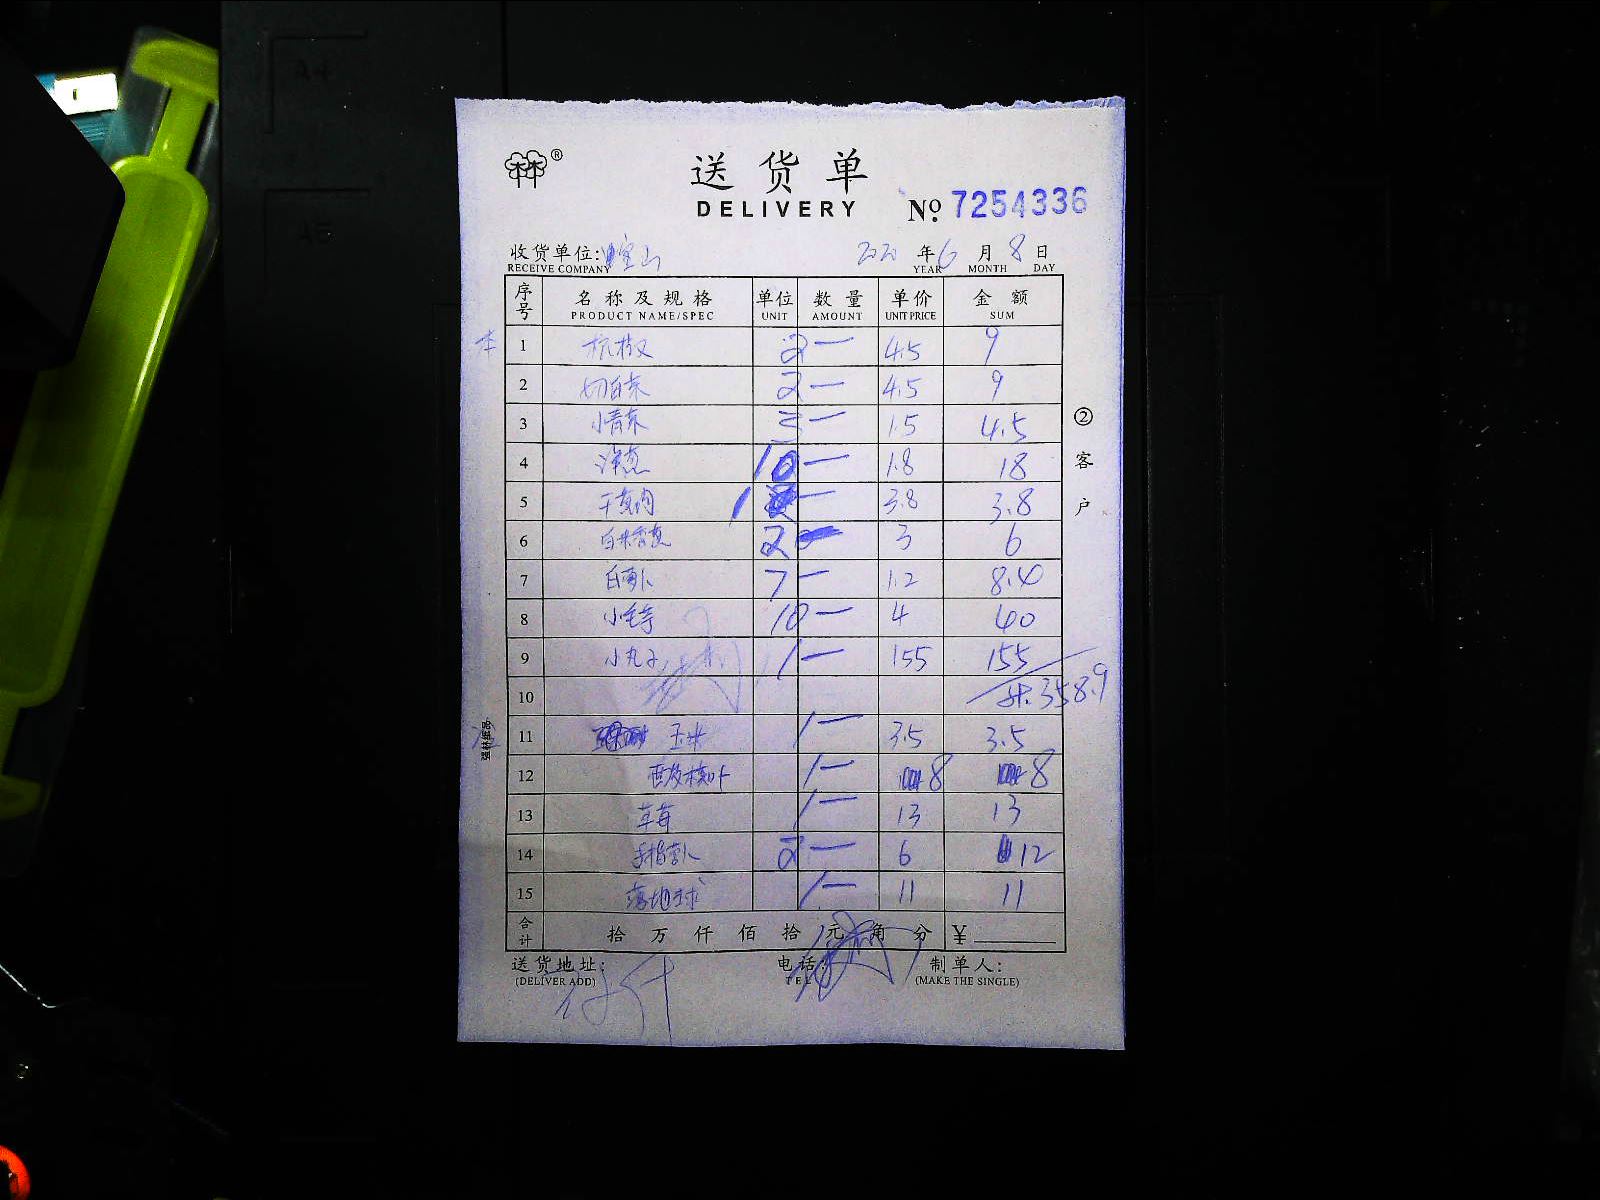 送货单
DELIVERY
№ 7254336
收货单位: 宝山 2020 年 6 月 8 日
RECEIVE COMPANY YEAR MONTH DAY
序号 名称及规格 单位 数量 单价 金额
PRODUCT NAME/SPEC UNIT AMOUNT UNIT PRICE SUM
1 杭椒 2 — 4.5 9
2 切白菜 2 — 4.5 9
3 小青菜 3 — 1.5 4.5
4 洋葱 10 — 1.8 18
5 1 — 3.8 3.8
6 2 3 6
7 白萝卜 7 — 1.2 8.4
8 小毛芋 10 — 4 40
9 小丸子 1 — 155 155
10 共358.9
11 玉米 1 — 3.5 3.5
12 1 — 8 8
13 草莓 1 — 13 13
14 手指萝卜 2 — 6 12
15 1 — 11 11
合计 拾 万 仟 佰 拾 元 角 分 ¥
送货地址: 电话: 制单人:
(DELIVER ADD) TEL (MAKE THE SINGLE)
②客户